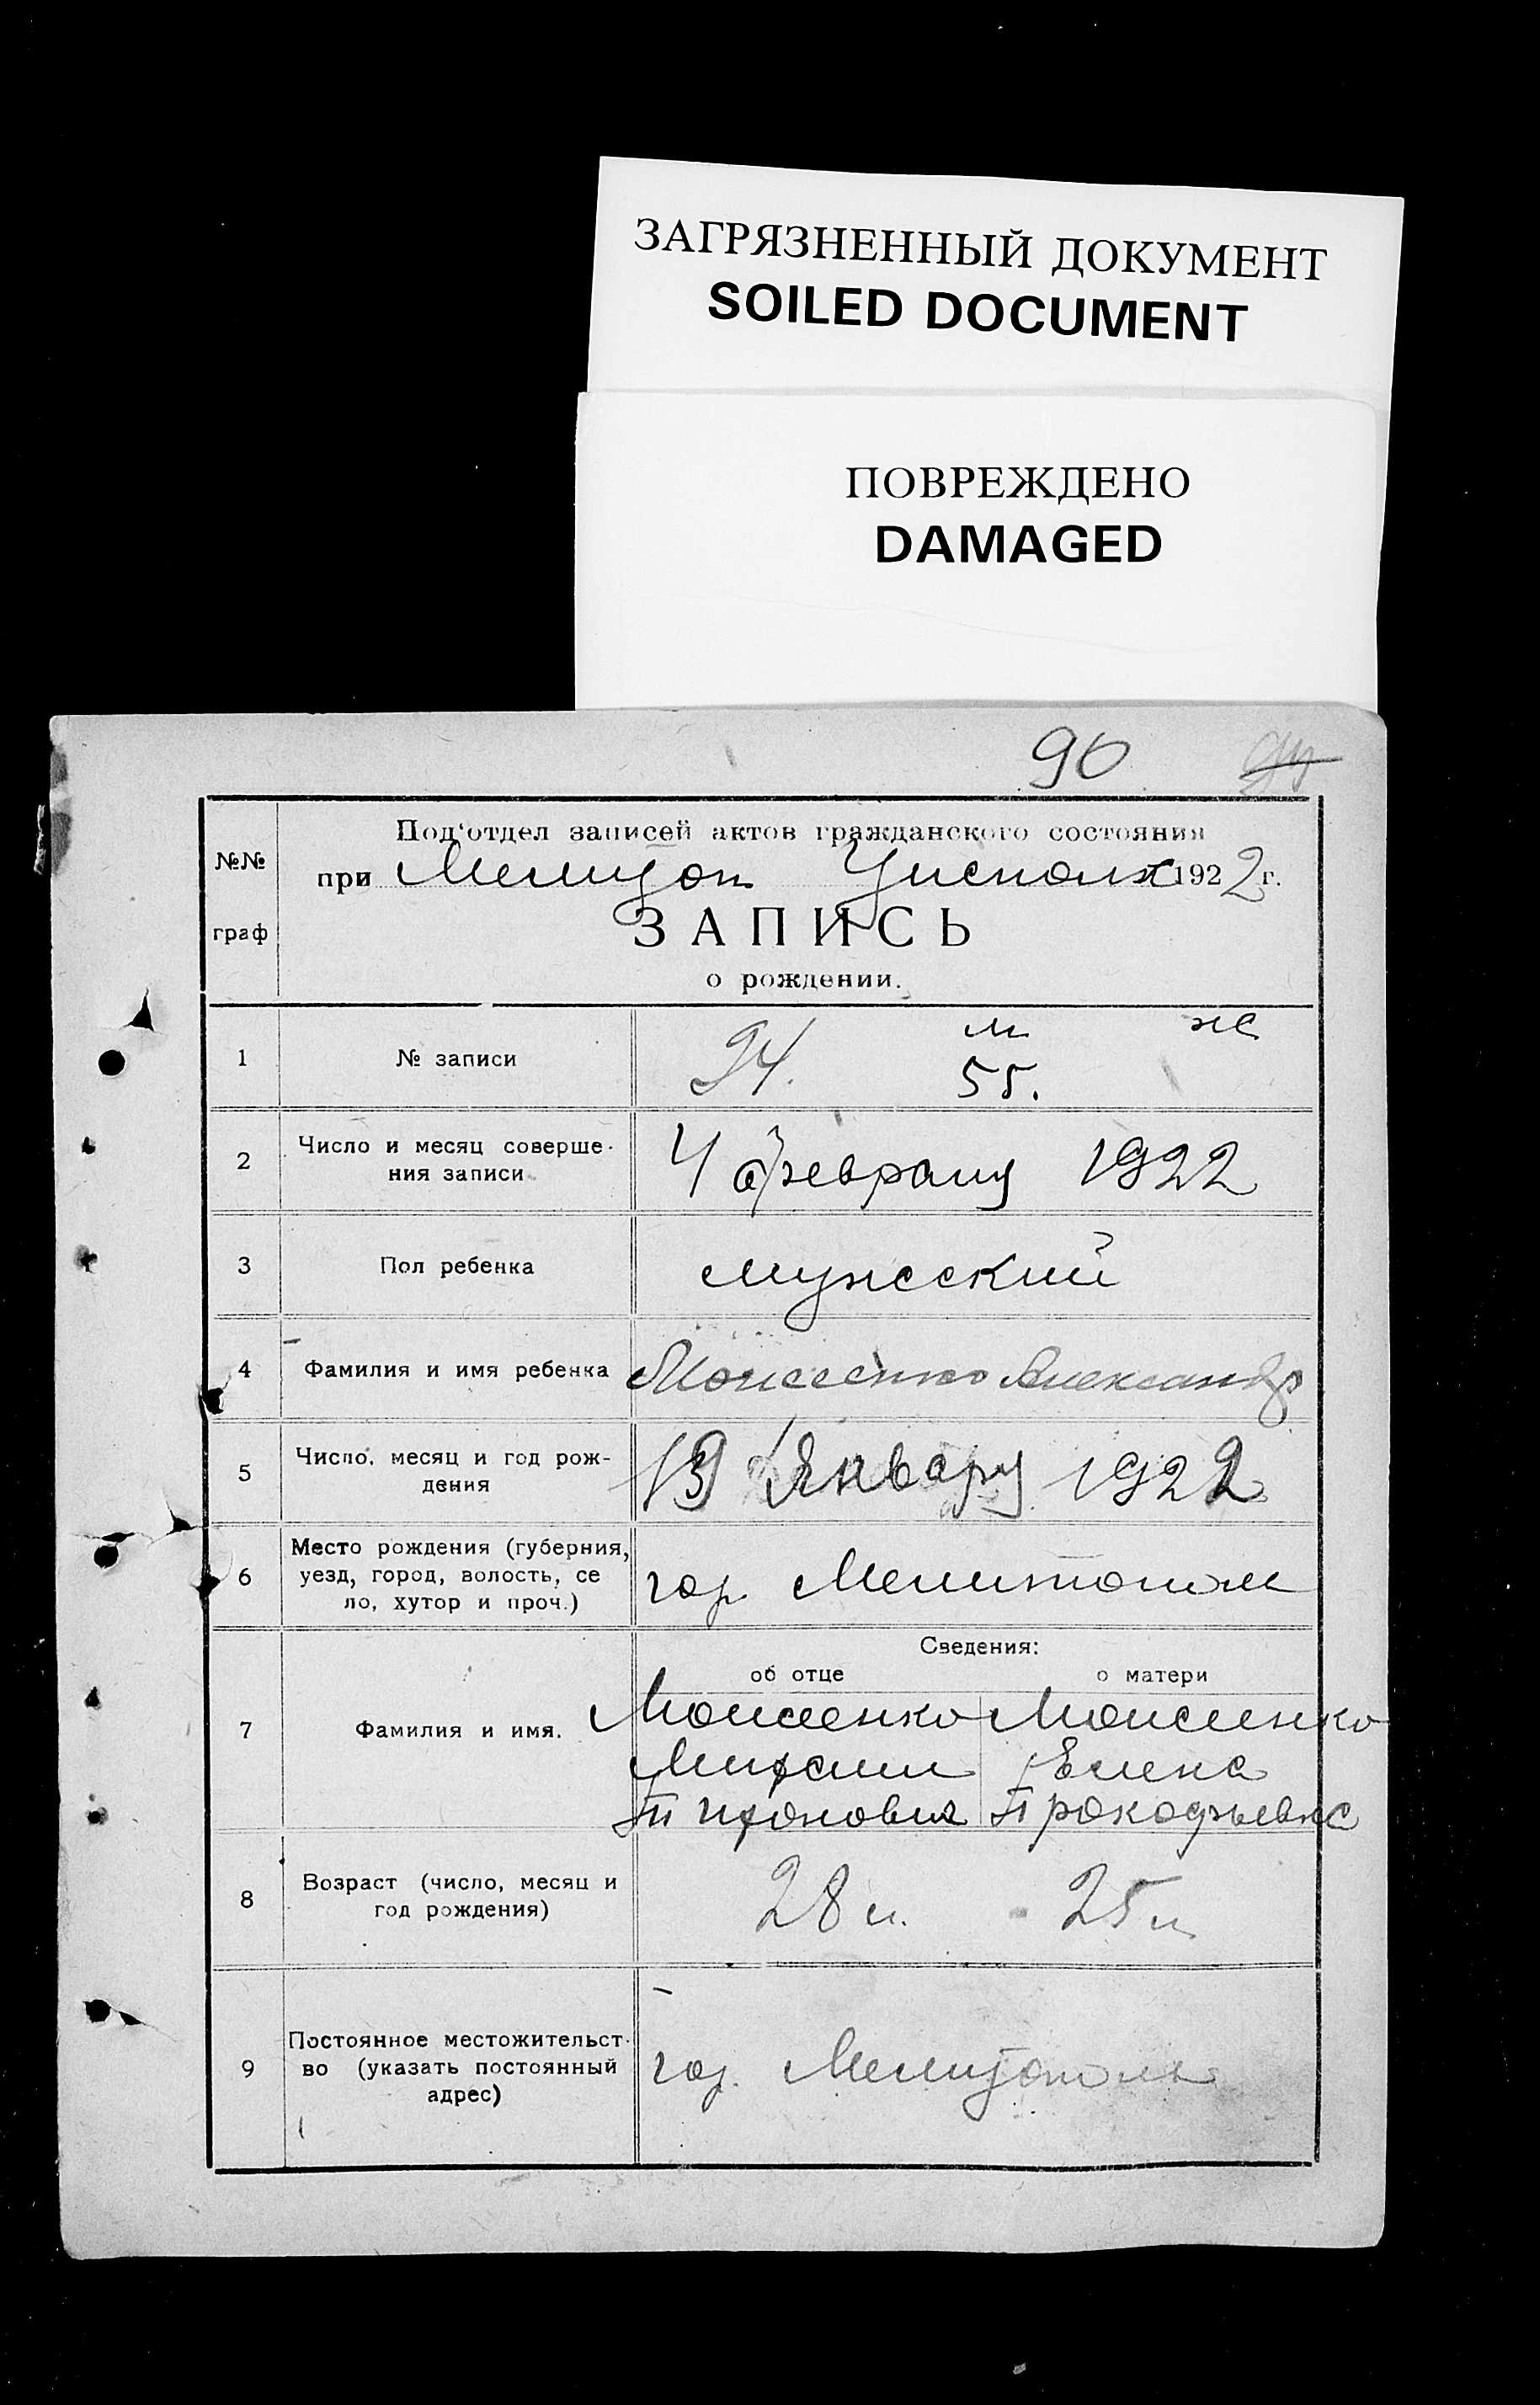 ЗАГРЯЗНЕННЫЙ ДОКУМЕНТ
SOILED DOCUMENT
ПОВРЕЖДЕНО
DAMAGED
90
№№
граф
Под‘отдел записей актов гражданского состояния
при Мелитоп Уисполк 1922 г.
ЗАПИСЬ
о рождении.
м ж
1 № записи 94. 55.
2 Число и месяц соверше-
ния записи
4 февраля 1922
3 Пол ребенка мужеский
4 Фамилия и имя ребенка Моисеенко Александр
5 Число, месяц и год рож-
дения
Января 1922
6 Место рождения (губерния,
уезд, город, волость, се
ло, хутор и проч.)
гор Мелитополе
Сведения:
об отце о матери
7 Фамилия и имя.
Моисеенко Моисеенко
Михаил Елена
Тихонович Прокофьевна
8 Возраст (число, месяц и
год рождения)
28 л. 25 л
9 Постоянное местожительст-
во (указать постоянный
адрес)
гор. Мелитополь